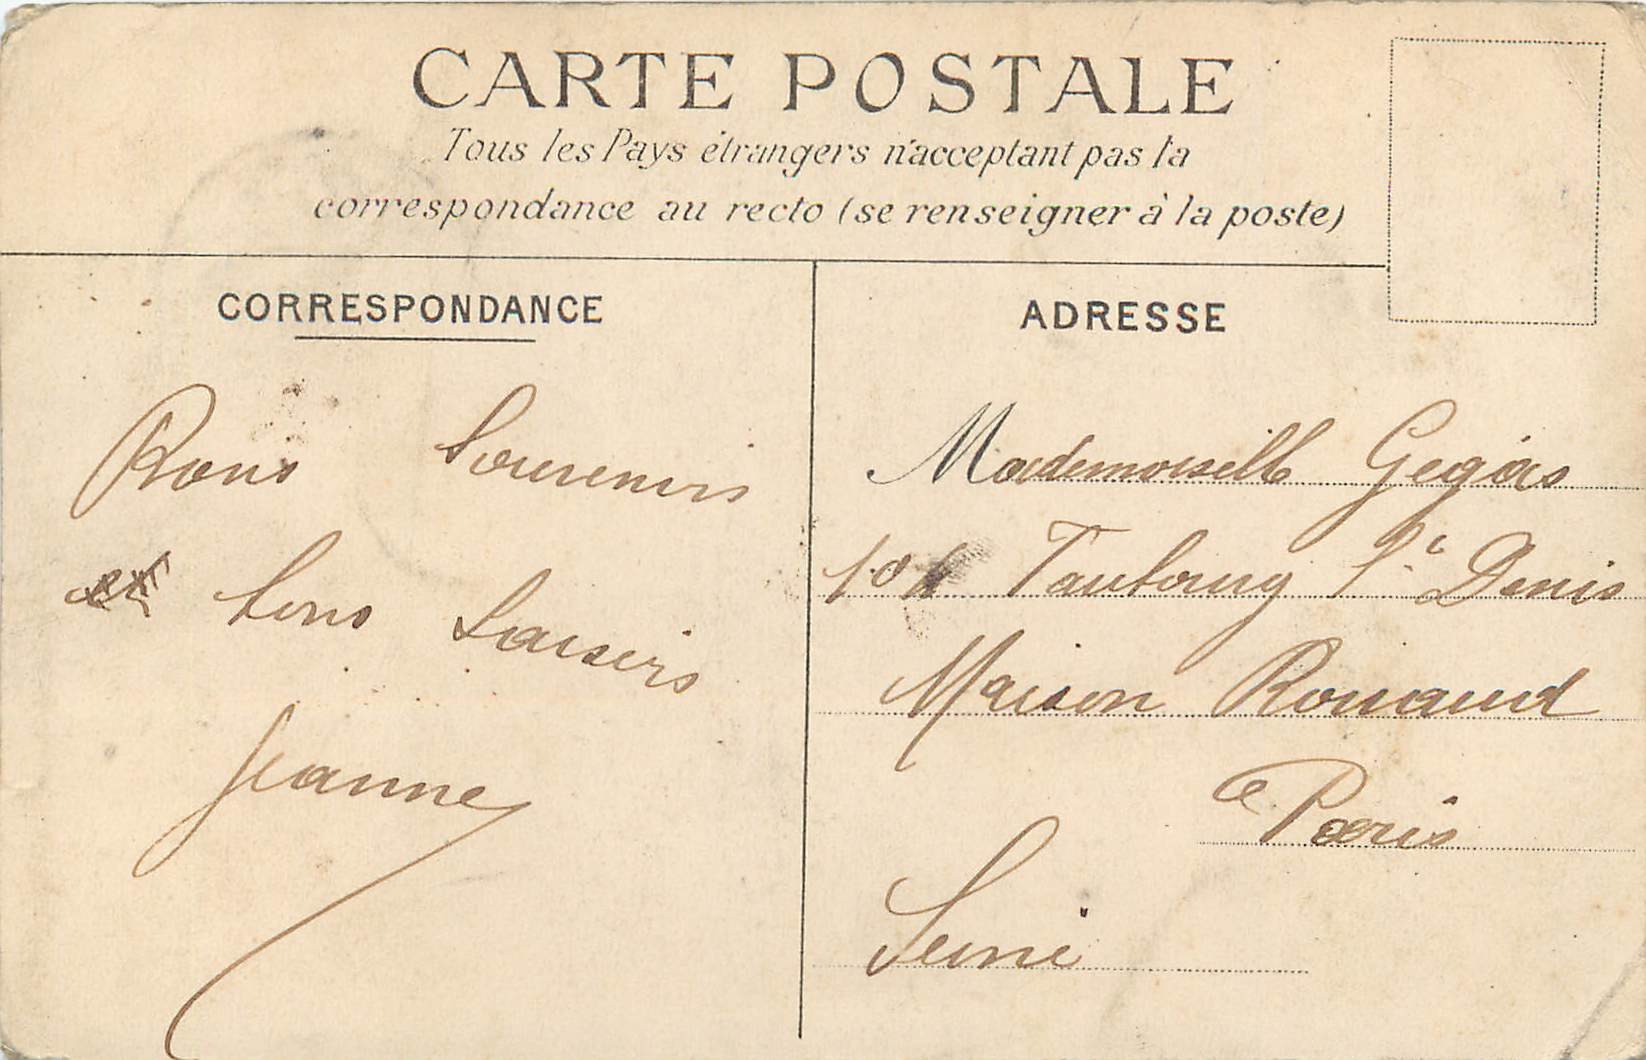 CARTE POSTALE
Tous les Pays étrangers n'acceptant pas la
correspondance au recto (se renseigner à la poste)
CORRESPONDANCE
Bons Souvenirs
et bons baisers
Jeanne
ADRESSE
Mademoiselle
Faubourg St Denis
Maison Rouaud
a Paris
Seine